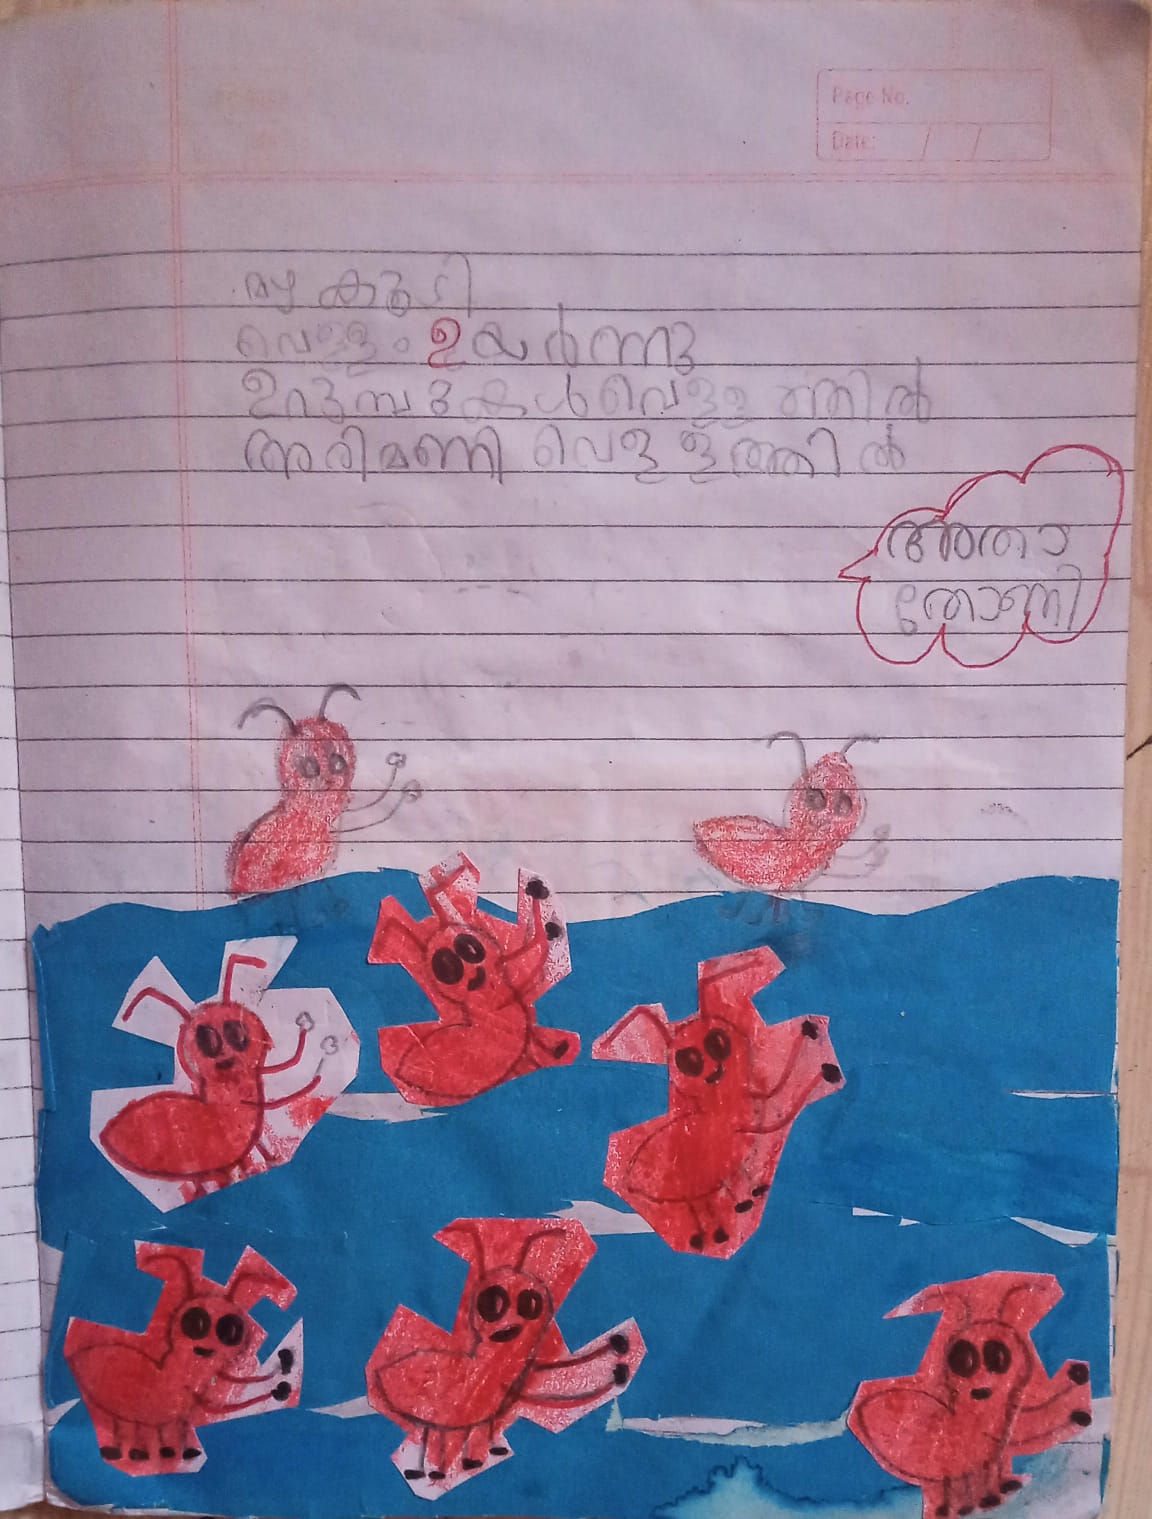 Page No.
Date: / /
മഴ കൂടി
വെള്ളം ഉയർന്നു
ഉറുമ്പുകൾ വെള്ളത്തിൽ
അരിമണി വെള്ളത്തിൽ
അതാ
തോണി